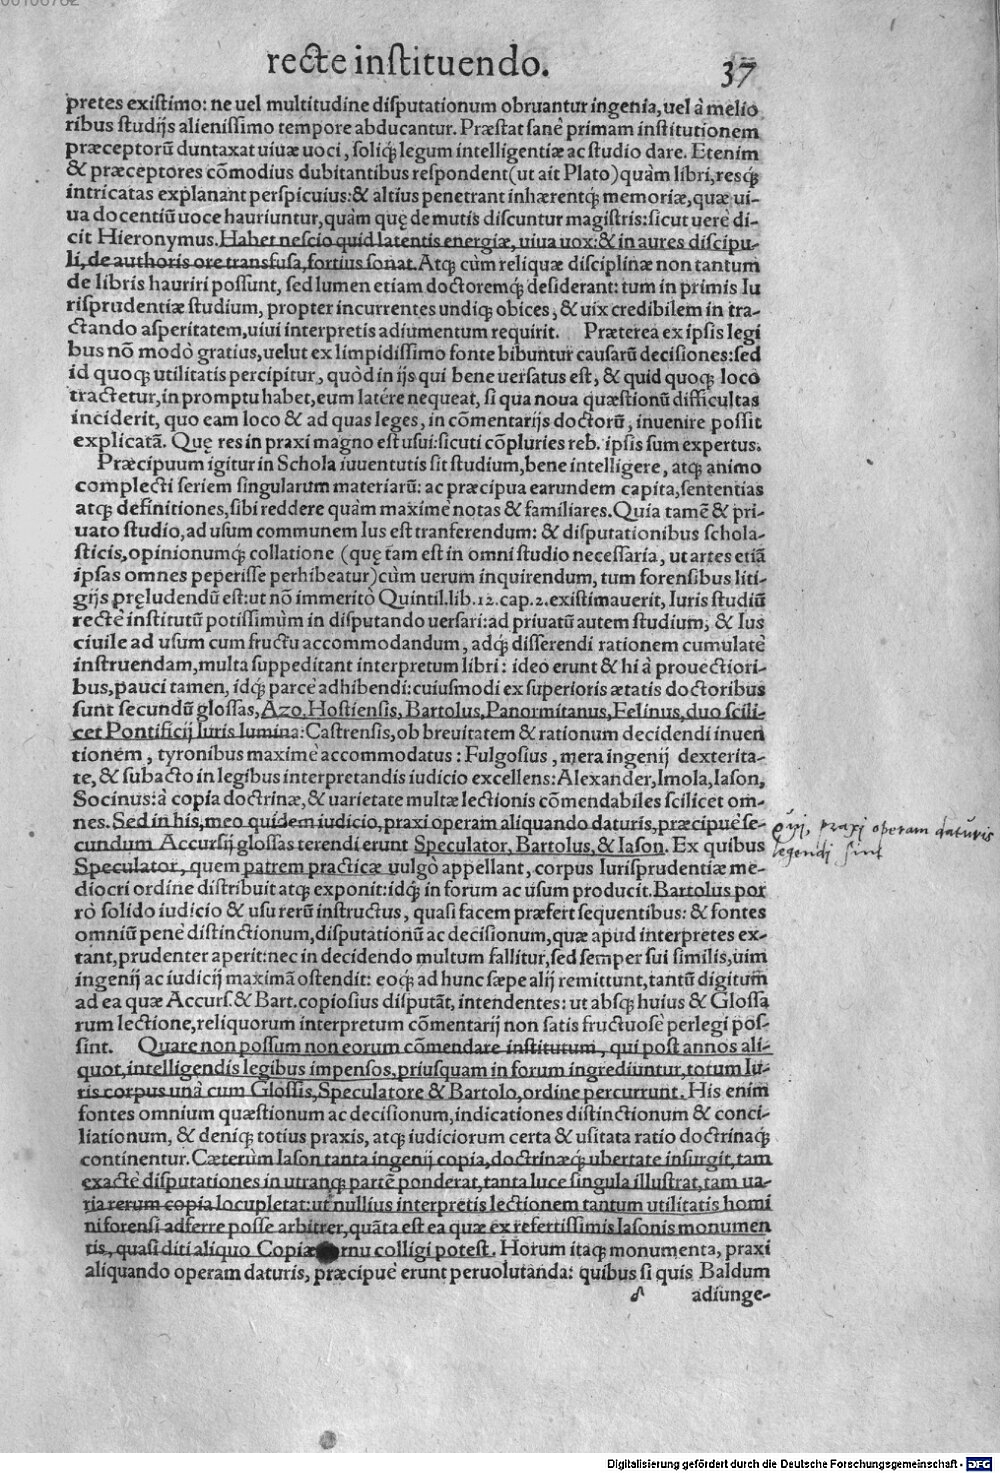 recte instituendo.
37
pretes existimo: ne uel multitudine disputationum obruantur ingenia, uel à melio
ribus studijs alienissimo tempore abducantur. Præstat sanè primam institutionem
præceptorū duntaxat uiuæ uoci, soliq́; legum intelligentiæ ac studio dare. Etenim
& præceptores cōmodius dubitantibus respondent (ut ait Plato) quàm libri, resq́;
intricatas explanant perspicuius: & altius penetrant inhærentq́; memoriæ, quæ ui-
ua docentiū uoce hauriuntur, quàm quę de mutis discuntur magistris: sicut uere di-
cit Hieronymus. Habet nescio quid latentis energiæ, uiua uox: & in aures discipu-
li, de authoris ore transfusa, fortius sonat. Atq; cùm reliquæ disciplinæ non tantum
de libris hauriri possunt, sed lumen etiam doctoremq́; desiderant: tum in primis Iu
risprudentiæ studium, propter incurrentes undiq; obices, & uix credibilem in tra-
ctando asperitatem, uiui interpretis adiumentum requirit. Præterea ex ipsis legi
bus nō modò gratius, uelut ex limpidissimo fonte bibuntur causarū decisiones: sed
id quoq; utilitatis percipitur, quòd in ijs qui bene uersatus est, & quid quoq; loco
tractetur, in promptu habet, eum latere nequeat, si qua noua quæstionū difficultas
inciderit, quo eam loco & ad quas leges, in cōmentarijs doctorū, inuenire possit
explicatā. Quę res in praxi magno est usui: sicuti cōpluries reb. ipsis sum expertus.
Præcipuum igitur in Schola iuuentutis sit studium, bene intelligere, atq; animo
complecti seriem singularum materiarū: ac præcipua earundem capita, sententias
atq; definitiones, sibi reddere quàm maximè notas & familiares. Quia tamē & pri-
uato studio, ad usum communem Ius est tranferendum: & disputationibus schola-
sticis, opinionumq́; collatione (quę tam est in omni studio necessaria, ut artes etiā
ipsas omnes peperisse perhibeatur) cùm uerum inquirendum, tum forensibus liti-
gijs pręludendū est: ut nō immeritò Quintil. lib. 12. cap. 2. existimauerit, Iuris studiū
rectè institutū potissimùm in disputando uersari: ad priuatū autem studium, & Ius
ciuile ad usum cum fructu accommodandum, adq́; disserendi rationem cumulatè
instruendam, multa suppeditant interpretum libri: ideo erunt & hi à prouectiori-
bus, pauci tamen, idq́; parcè adhibendi: cuiusmodi ex superioris ætatis doctoribus
sunt secundū glossas, Azo, Hostiensis, Bartolus, Panormitanus, Felinus, duo scili-
cet Pontificij Iuris lumina: Castrensis, ob breuitatem & rationum decidendi inuen
tionem, tyronibus maximè accommodatus: Fulgosius, mera ingenij dexterita-
te, & subacto in legibus interpretandis iudicio excellens: Alexander, Imola, Iason,
Socinus: à copia doctrinæ, & uarietate multæ lectionis cōmendabiles scilicet om-
nes. Sed in his, meo quidem iudicio, praxi operam aliquando daturis, præcipuè se-
cundum Accursij glossas terendi erunt Speculator, Bartolus, & Iason. Ex quibus
qui, praxi operam daturis
legendi sint
Speculator, quem patrem practicæ uulgò appellant, corpus Iurisprudentiæ me-
diocri ordine distribuit atq; exponit: idq́; in forum ac usum producit. Bartolus por
rò solido iudicio & usu rerū instructus, quasi facem præfert sequentibus: & fontes
omniū penè distinctionum, disputationū ac decisionum, quæ apud interpretes ex-
tant, prudenter aperit: nec in decidendo multum fallitur, sed semper sui similis, uim
ingenij ac iudicij maximā ostendit: eoq́; ad hunc sæpe alij remittunt, tantū digitum
ad ea quæ Accurs. & Bart. copiosius disputāt, intendentes: ut absq; huius & Glossa
rum lectione, reliquorum interpretum cōmentarij non satis fructuosè perlegi pos-
sint. Quare non possum non eorum cōmendare institutum, qui post annos ali-
quot, intelligendis legibus impensos, priusquam in forum ingrediuntur, totum Iu-
ris corpus unà cum Glossis, Speculatore & Bartolo, ordine percurrunt. His enim
fontes omnium quæstionum ac decisionum, indicationes distinctionum & conci-
liationum, & deniq; totius praxis, atq; iudiciorum certa & usitata ratio doctrinaq́;
continentur. Cæterùm Iason tanta ingenij copia, doctrinæq́; ubertate insurgit, tam
exactè disputationes in utranq; partē ponderat, tanta luce singula illustrat, tam ua-
ria rerum copia locupletat: ut nullius interpretis lectionem tantum utilitatis homi
ni forensi adferre posse arbitrer, quāta est ea quæ ex refertissimis Iasonis monumen
tis, quasi diti aliquo Copiæ rnu colligi potest. Horum itaq; monumenta, praxi
aliquando operam daturis, præcipuè erunt peruolutanda: quibus si quis Baldum
adiunge-
Digitalisierung gefördert durch die Deutsche Forschungsgemeinschaft - DFG